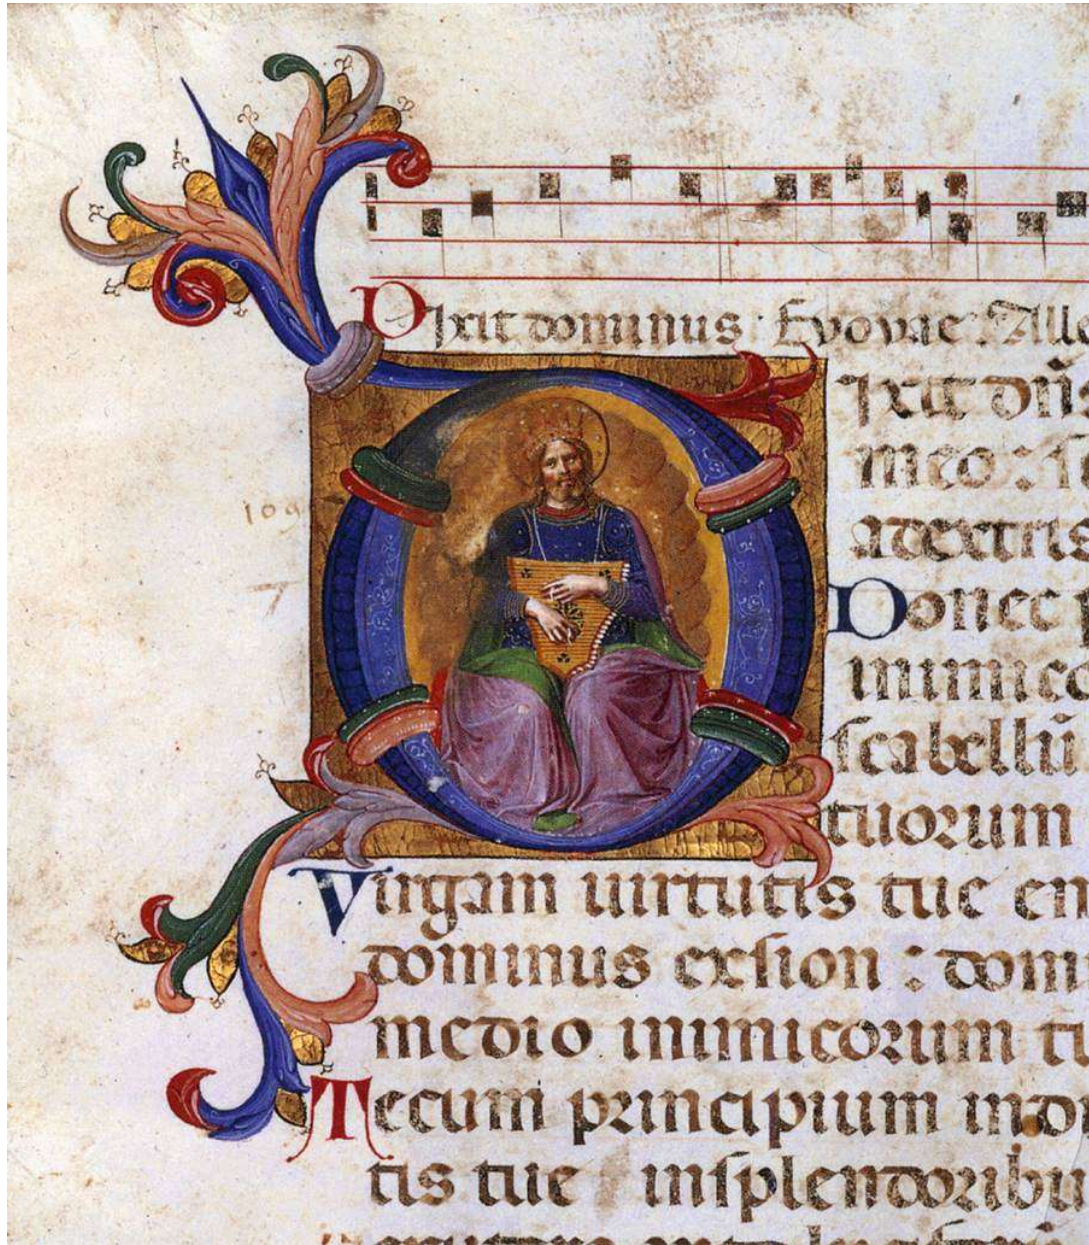 109
7
Dixit dominus: Evovae: Alle
Dixit dn̄
meo: se
adextris
Donec
inimico
scabellū
tuorum
Virgam uirtutis tue em
dominus exsion: domi
medio inimicorum tu
Tecum principium in
tis tue insplendoribu